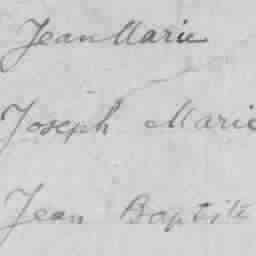 Jean Marie
Joseph Marie
Jean Baptiste